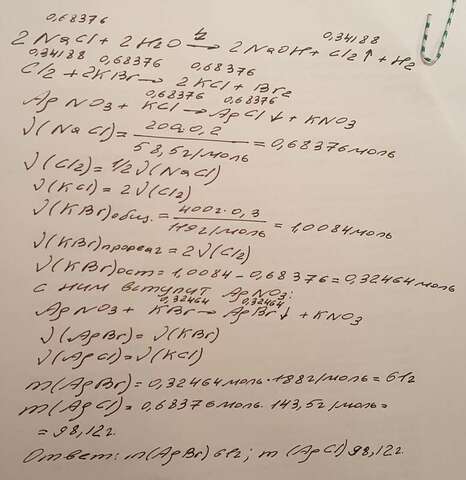 0,68376 0,34188
2 NaCl + 2H2O →(½) 2NaOH + Cl2↑ + H2
0,34188 0,68376 0,68376
Cl2 + 2KBr → 2 KCl + Br2
0,68376 0,68376
AgNO3 + KCl → AgCl↓ + KNO3
ν(NaCl) = 200·0,2 / 58,5г/моль = 0,68376моль
ν(Cl2) = 1/2 ν(NaCl)
ν(KCl) = 2ν(Cl2)
ν(KBr)общ. = 400г·0,3 / 119г/моль = 1,0084моль
ν(KBr)прореаг = 2ν(Cl2)
ν(KBr)ост = 1,0084 - 0,68376 = 0,32464моль
с ним вступит AgNO3:
0,32464 0,32464
AgNO3 + KBr → AgBr↓ + KNO3
ν(AgBr) = ν(KBr)
ν(AgCl) = ν(KCl)
m(AgBr) = 0,32464моль·188г/моль = 61г
m(AgCl) = 0,68376моль·143,5г/моль =
= 98,12г.
Ответ: m(AgBr) 61г; m(AgCl) 98,12г.